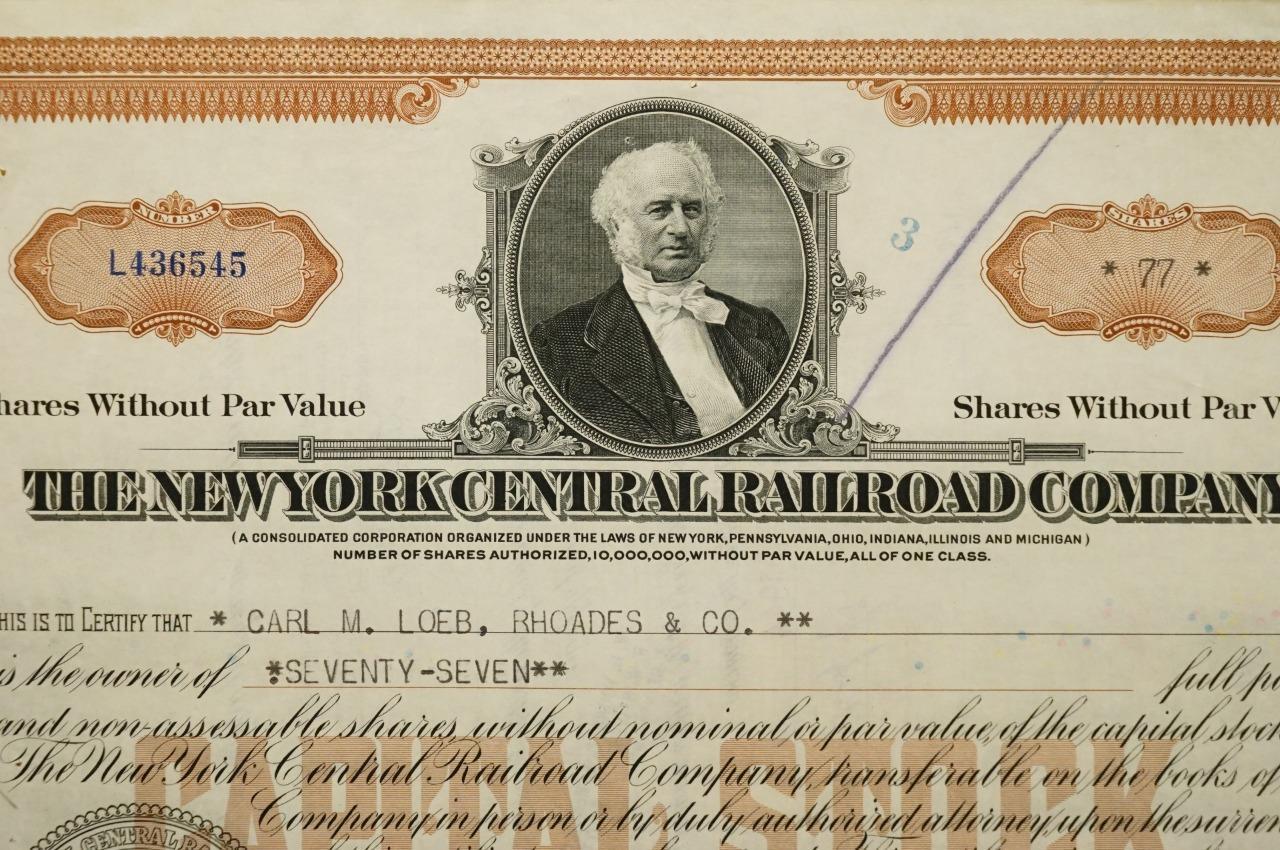 NUMBER
L436545
3
SHARES
* 77 *
hares Without Par Value
Shares Without Par V
THE NEW YORK CENTRAL RAILROAD COMPANY
(A CONSOLIDATED CORPORATION ORGANIZED UNDER THE LAWS OF NEW YORK, PENNSYLVANIA, OHIO, INDIANA, ILLINOIS AND MICHIGAN)
NUMBER OF SHARES AUTHORIZED, 10,000,000, WITHOUT PAR VALUE, ALL OF ONE CLASS.
HIS IS TO CERTIFY THAT * CARL M. LOEB, RHOADES & CO. **
is the owner of *SEVENTY-SEVEN** full pa
and non-assessable shares, without nominal or par value, of the capital stock
The New York Central Railroad Company, transferable on the books of
CAPITAL STOCK
Company in person or by duly authorized attorney, upon the surren
CENTRAL RA